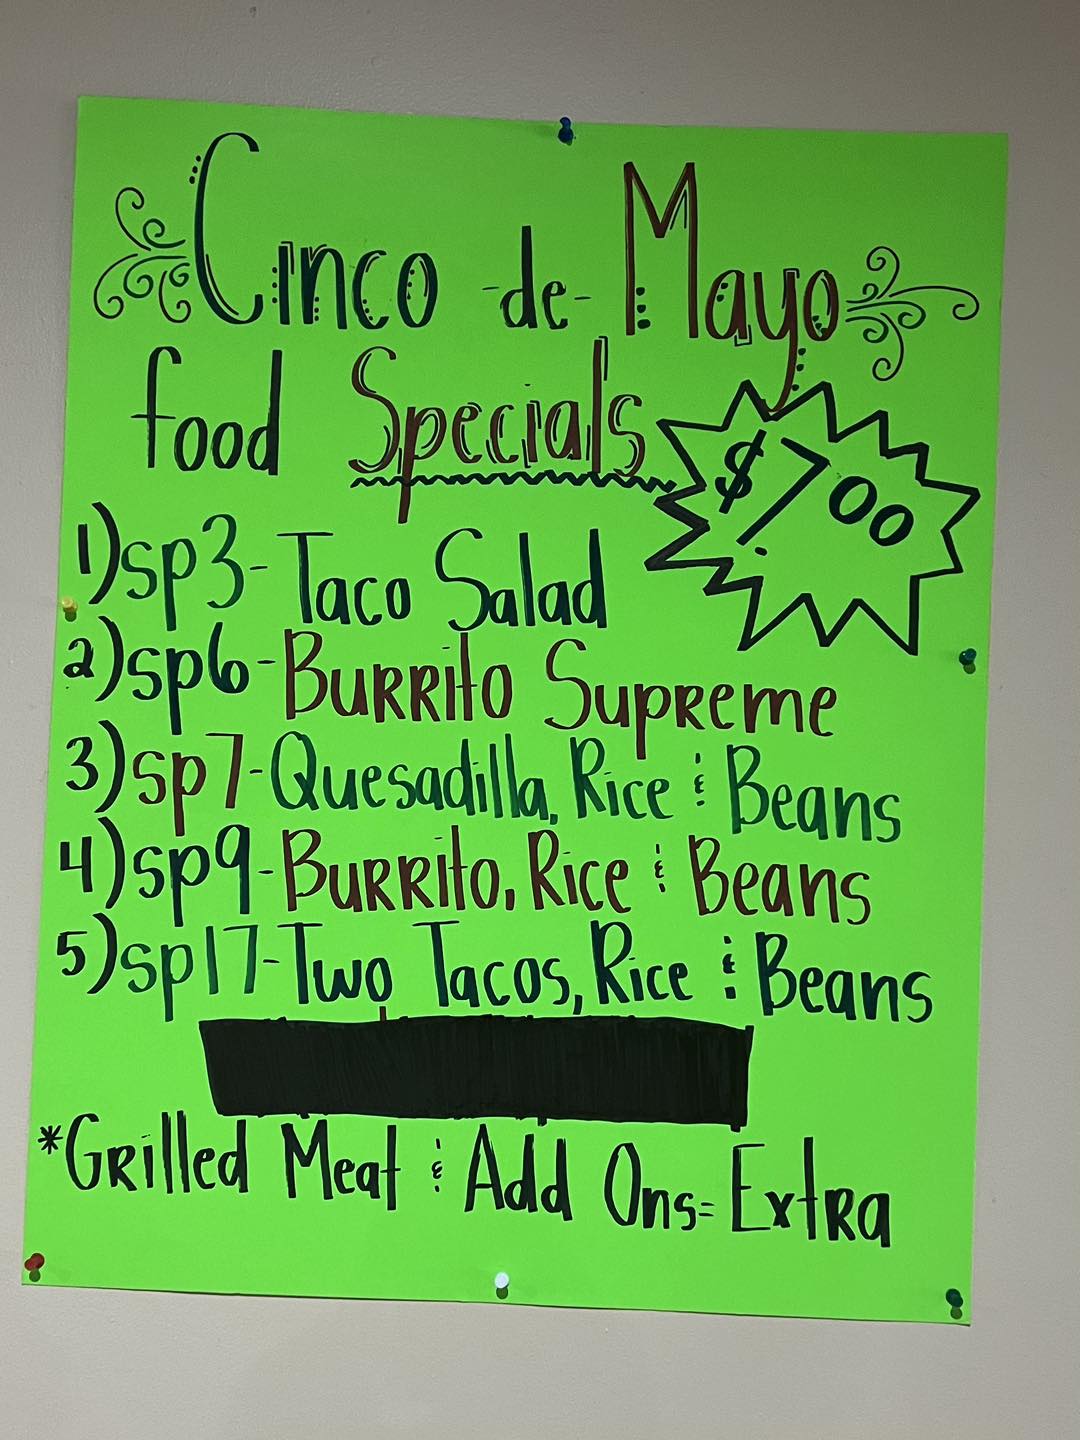 Cinco -de- Mayo
food Specials
$7.00
1) sp3- Taco Salad
2) sp6- Burrito Supreme
3) sp7- Quesadilla, Rice & Beans
4) sp9- Burrito, Rice & Beans
5) sp17- Two Tacos, Rice & Beans
*Grilled Meat & Add Ons= Extra